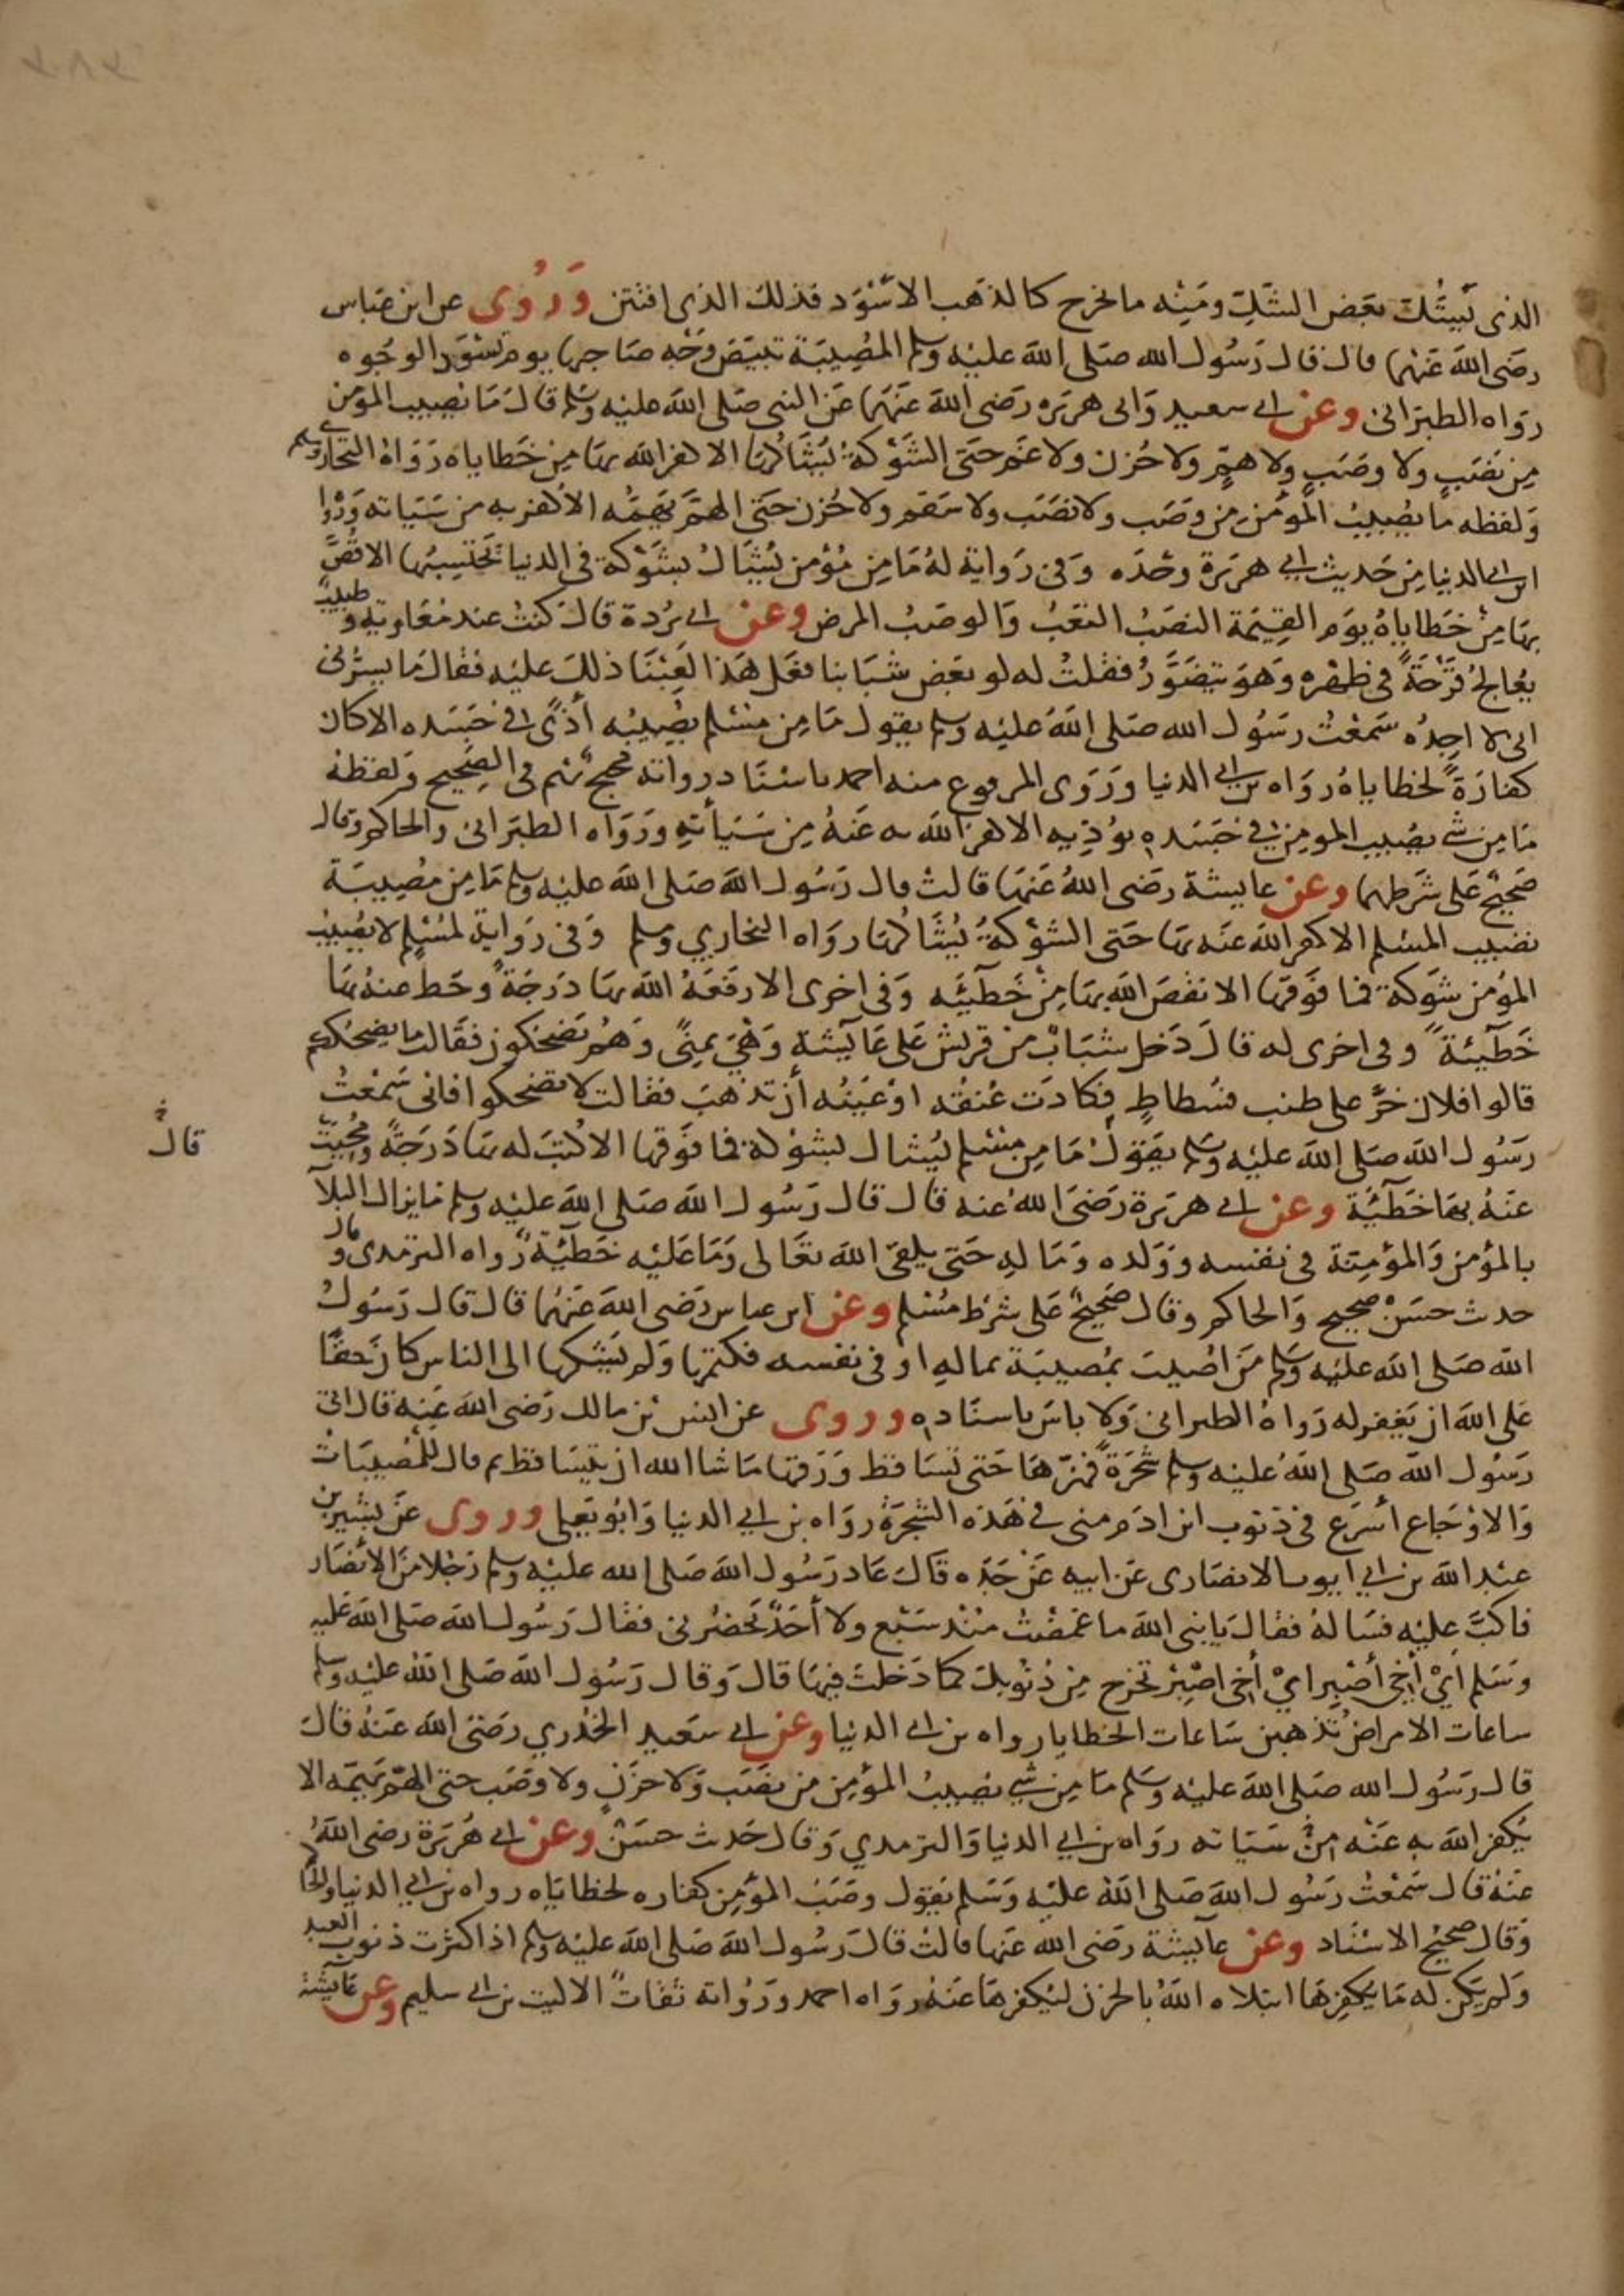 الذى يَشُكُّ بعَض الشكِّ ومنِه ما يخرج كالذهَب الاسْوَد فذلك الذى افتتن وَرُوى عن ابن عباس
رضَى اللهَ عَنْهما قال قال رَسُول الله صَلى اللهَ عليْه وسلم المُصِيبَة تبيّضَ وَجْه صَاحِبها يوم تسْوَد الوجُوه
روَاه الطبرَانى وعن ابى سعيد وَابى هريرَه رضَى اللهَ عَنهَما عَن النبى صَلى اللهَ عليْه وسَلم قالَ مَا يُصِيب المؤمن
مِن نصَبٍ ولا وصَبٍ ولا همٍّ ولا حُزن ولا غمّ حتى الشَوْكة يُشَاكُها الا كفر الله بهَا مِن خَطاياه رَوَاهُ البخارى ومسلم
وَلفظه ما يُصِيبُ المؤمن من وصَب ولا نصَب ولا سَقم ولا حُزن حَتى الهَمّ يهَمُّه الا كفر به من سَيّاته وَرْوا
ابن ابى الدنيا مِن حَديث ابى هريَرة وحْدَه وَفى رَواية لهُ مَا مِن مُؤمن يُشَاكُ بشَوْكة فى الدنيا يَحتسِبُها الا قُصَّ
بهَا مِنْ خَطاياهُ يوَم القِيٰمَة النصَبُ التعَبُ وَالوصَبُ المرض وعن ابى بُردة قالَ كنتُ عند مُعَاوية وطبيبٌ
يُعالجُ قَرْحَةً فى ظهْره وَهوَ يتضَوَّرُ فقلتُ له لو بعَض شبَابنا فعَل هَذا لعِبْنَا ذلكَ عليْه فقالَ مَا يسرُّنى
انى لا اجِدُه سَمعْتُ رسُول الله صَلى اللهَ عليْه وسلم يقول مَا مِن مسْلم يصُيبُه أذًى فى جَسَده الا كان
كفارَةً لخطاياهُ روَاه بن ابى الدنيا ورَوَى المرفوع منه احمد باسنَاد رواته محتج بهم فى الصحِيح وَلفظهُ
مَا مِن شى يصُيب المومن فى جَسَده يُؤذِيه الا كفر الله به عَنهُ مِن سَيأتهِ ورَوَاه الطبَرانى والحاكم وقال
صَحيحٌ عَلى شرَطهما وعن عايشة رضَى اللهُ عَنهَا قالتْ قال رَسُول اللهَ صَلى اللهَ عليْه وسلم مَا مِن مُصِيبَة
تصُيب المسْلم الا كفر اللهَ عَنه بهَا حَتى الشوْكةُ يُشَاكُها روَاه البخاري ومسلم وَفى رَوايةٍ لمُسْلم لا يُصيبُ
المؤمن شوَكة فما فوَقها الا نقصَ الله بهَا مِنْ خَطيئَه وَفى اخرى الا رفَعَهُ الله بهَا دَرجَةً وحَط عنهُ بهَا
خَطيئةً وفى اخرى له قالَ دَخل شبَابٌ من قريش عَلى عَائيشة وَهْىَ بمِنًى وَهُم يَضحكون فقالت ما يضحكم
قالوا فلان خرَّ على طنب فسُطاطٍ فكادَت عُنقُه اوْعَينُه أنْ تذهبَ فقالت لا تضحكوا فانى سَمعْتُ
رسَوُل الله صَلى اللهَ عليْه وسَلم يقوَلُ مَا مِن مسْلم يُشاك بشوْكة فما فوَقها الا كُتبَ له بهَا دَرَجَةً ومُحِيَتْ
عَنهُ بهَا خَطيئَة وعن ابى هريَرة رَضىَ اللهُ عنه قال قال رَسُول اللهَ صَلى اللهَ عليْه وسلم مَا يزال البلآ
بالمؤمن وَالمؤمِنة فى نفسه ووَلده وَمَالهِ حَتى يلقى اللهَ تعَالى وَمَا عَليْه خَطيئةً رواه الترمدى وقال
حدث حسَنْ صحيح وَالحاكم وقال صَحيْحٌ عَلى شرَط مُسْلم وعن ابن عباس رَضى اللهَ عَنهُما قال قال رَسُولُ
اللهَ صَلى اللهَ عليْه وسَلم مَن اصُيبَ بمُصيبَة بمالهِ او فى نفسه فكتمَها وَلم يَشكها الى الناس كان حَقًا
عَلى اللهَ ان يَغفر له روَاهُ الطبرانى وَلا باسَ باسنَاده وروى عن انس بن مالك رَضى اللهَ عَنه قال اتى
رسَوُل اللهَ صَلى اللهَُ عليْه وسلم شَجَرةً فهزّهَا حَتى تسَاقط وَرَقهَا مَا شا الله ان يتسَاقط ثم قال للْمُصِيبَاتُ
وَالاوْجَاع أسْرَع فى ذنوب ابن ادَم منى فى هَذه الشجَرَة روَاه بن ابي الدنيا وَابُو يَعلى وروى عَن بشير بن
عبْد اللهَ بن ابي ايوب الانصَارى عَن ابيه عَنْ جَدّه قالَ عَاد رَسُول اللهَ صَلى الله عليْه وسلم رَجُلا منَ الانصَار
فاكبَّ عليْه فسَالهُ فقالَ يا نبى اللهَ ما غمضْتُ مُنْذ سَبْع ولا أحَدٌ يَحضُرنى فقال رَسُول الله صَلى اللهَ عَليه
وسَلم اىْ أخى أصْبِر اىْ أخى اصْبِرْ تخرج مِن ذُنوبكَ كما دَخلتَ فيهَا قالَ وَقال رَسُول اللهَ صَلى اللهَ عليْه وسلم
ساعات الامراضُ تذهبن سَاعات الخطايا رواه بن ابى الدنيا وعن ابى سَعيد الخُدري رضَى اللهَ عَنهُ قالَ
قال رَسُول الله صَلى اللهَ عليْه وسَلم مَا مِن شيْ يصُيبُ المؤمِن من نصَب وَلا حزَن ولا وصَب حتى الهَمّ يَهمّه الا
يُكفر اللهَ به عَنْه مِنْ سَيّاته روَاه بن ابي الدنيا وَالترمدي وَقال حَدث حسَنْ وعن ابى هُريَرة رضى اللهُ
عَنهُ قال سَمْعْتُ رسَوُل اللهَ صَلى اللهَُ عليْه وَسَلم يَقول وصَبُ المؤمِن كفاره لخطايَاه رواه بن ابي الدنيا والحاكم
وَقال صحيحْ الاسْنَاد وعن عآئيشة رضَى الله عَنهَا قالتْ قالَ رسُول اللهَ صَلى اللهَ عليْه وسلم اذا كثرت ذنوب العبد
وَلم يَكن له مَا يُكفِرهَا ابتلاه اللهَُ بالحزن ليُكفرهَا عَنهُ روَاه احمد ورَوُاته ثقاتٌ الا ليث بن ابى سليم وعن عَائيشةْ
قال